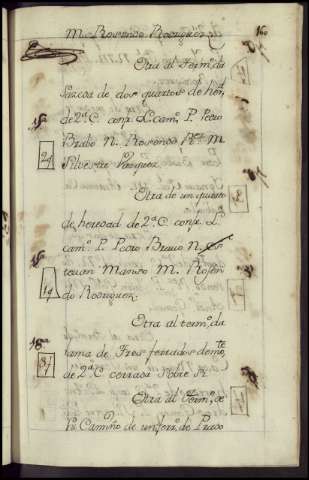 M. Rosendo Rodriguez 160
Otra al Termᵒ. da
de dos quartos de herᵈ.
16 de 2ᵃ C. confᵃ. L. camᵒ. P. Pedro
2q Brabo N. Rosendo Rᶻ. M.
Silvestre Vazquez.
Otra de un quarto
de heredad de 2ᵃ C. confᵃ. L.
camᵒ. P. Pedro Bravo N. Es
1q tevan Manso M. Rosen
do Rodriguez.
Otra al termᵒ. da
18 lama de Tres ferrados de mᵗᵉ
3f de 2ᵃ C. cerrada sobre sí
Otra al Termᵒ. de
Camiño de un ferr. de Prado